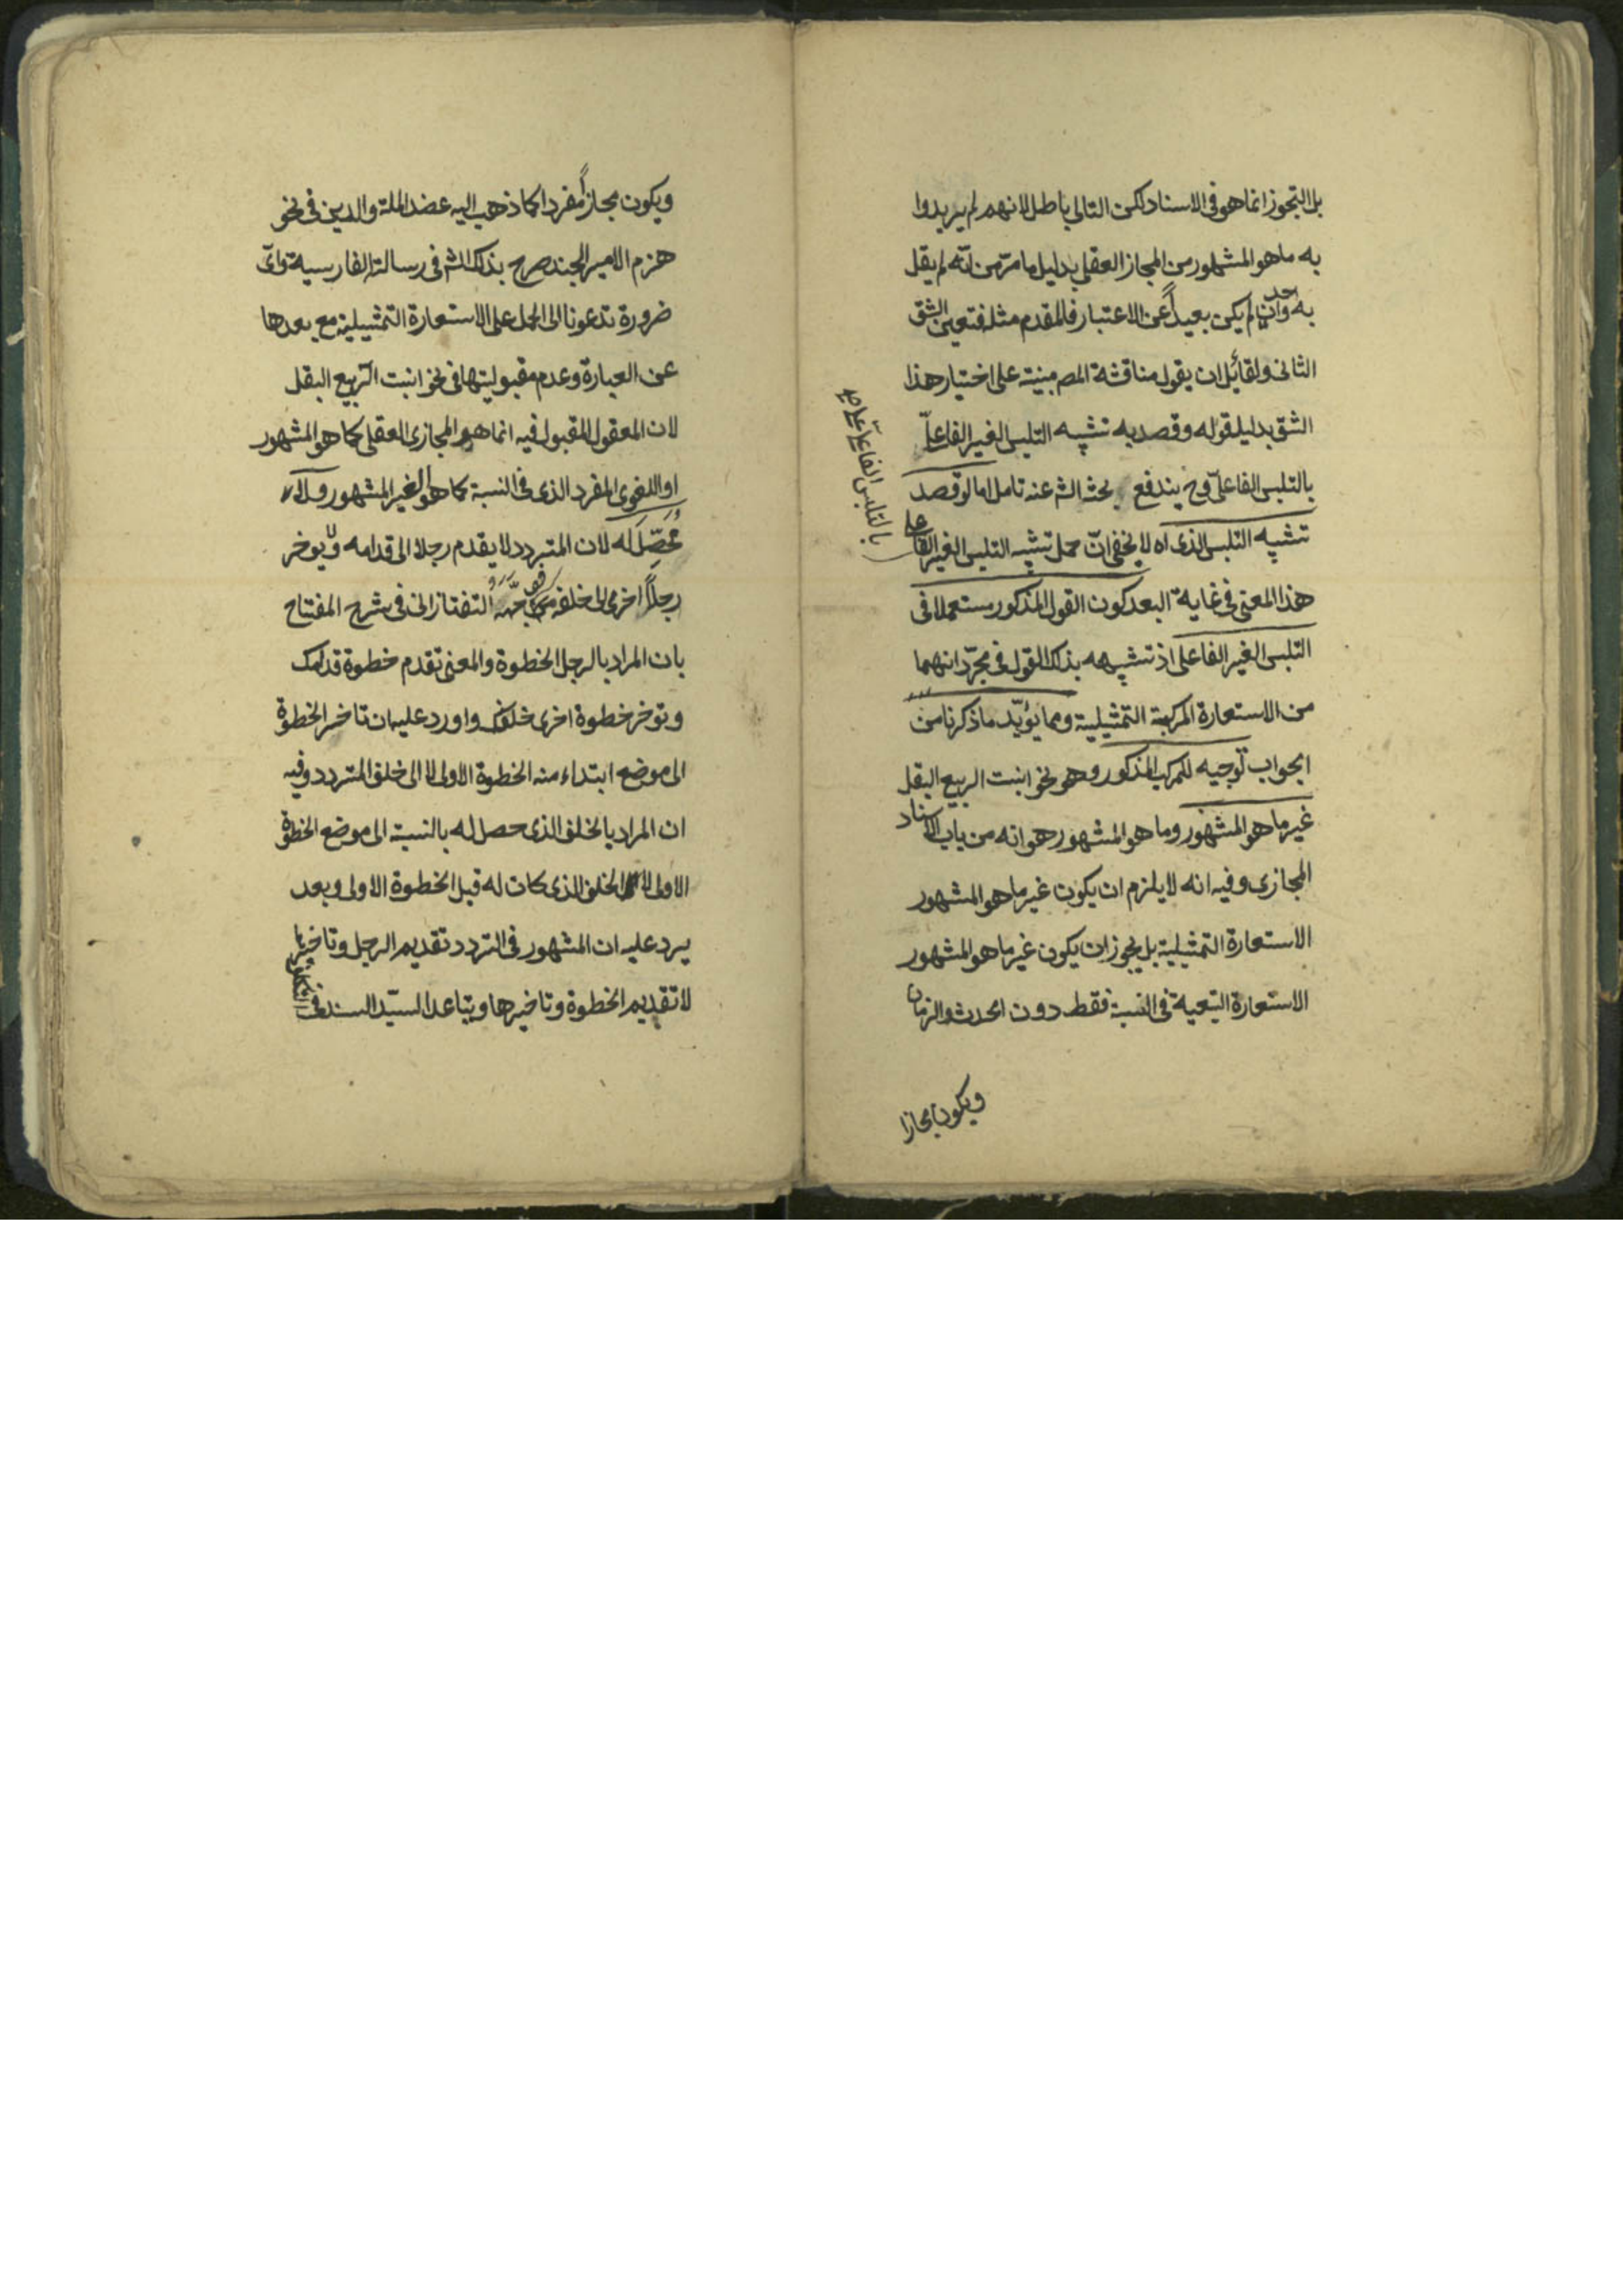 بل التجوز انما هو فى الاسناد لكن التالى باطل لانهم لم يريدوا
به ما هو المشهور من المجاز العقلى بدليل ما مرّ من انّه لم يقل
به احد وان لم يكن بعيداً عن الاعتبار فالمقدم مثله فتعين الشق
الثانى ولقائل ان يقول مناقشة المص مبنية على اختيار هذا
الشق بدليل قوله وقصد به تشبيه التلبس الغير الفاعلىّ
بالتلبس الفاعلىّ وح يندفع بحث الش عنه تامل اما لو قصد
تشبيه التلبس الذى اه لا يخفى انّ حمل تشبيه التلبس الغير الفاعلى
بالتلبس الفاعلىّ على
هذا المعنى فى غاية البعد كون القول المذكور مستعملا فى
التلبس الغير الفاعلى اذ تشبيهه بذلك القول فى مجرّد انهما
من الاستعارة المركبة التمثيلية ومما يؤيّد ما ذكرنا من
الجواب توجيه للمركب المذكور وهو نحو انبت الربيع البقل
غير ما هو المشهور وما هو المشهور هو انه من باب الاسناد
المجازى وفيه انه لا يلزم ان يكون غير ما هو المشهور
الاستعارة التمثيلية بل يجوز ان يكون غير ما هو المشهور
الاستعارة التبعية فى النسبة فقط دون الحدث والزمان
ويكون مجازا
ويكون مجازاً مفردا كما ذهب اليه عضد الملة والدين فى نحو
هزم الامير الجند صرح بذلك الش فى رسالته الفارسية واىّ
ضرورة تدعونا الى الحمل على الاستعارة التمثيلية مع بعدها
عن العبارة وعدم مقبوليتها فى نحو انبت الربيع البقل
لان المعقول المقبول فيه انما هو المجازى العقلى كما هو المشهور
او اللغوى المفرد الذى فى النسبة كما هو الغير المشهور ولا
مُحَصِّلَ له لان المتردد لا يقدم رجلا الى قدامه ولا يوخر
رجلاً اخرى الى خلفه التفتازانى فى شرح المفتاح
بان المراد بالرجل الخطوة والمعنى تقدم خطوة قدامك
وتوخر خطوة اخرى خلفك واورد عليه ان تاخر الخطوة
الى موضع ابتداء منه الخطوة الاولى لا الى خلف المتردد وفيه
ان المراد بالخلف الذى حصل له بالنسبة الى موضع الخطوة
الاولى لا الخلف الذى كان له قبل الخطوة الاولى وبعد
يرد عليه ان المشهور فى التردد تقديم الرجل وتاخيرها
لا تقديم الخطوة وتاخيرها وتباعد السيّد السند فى